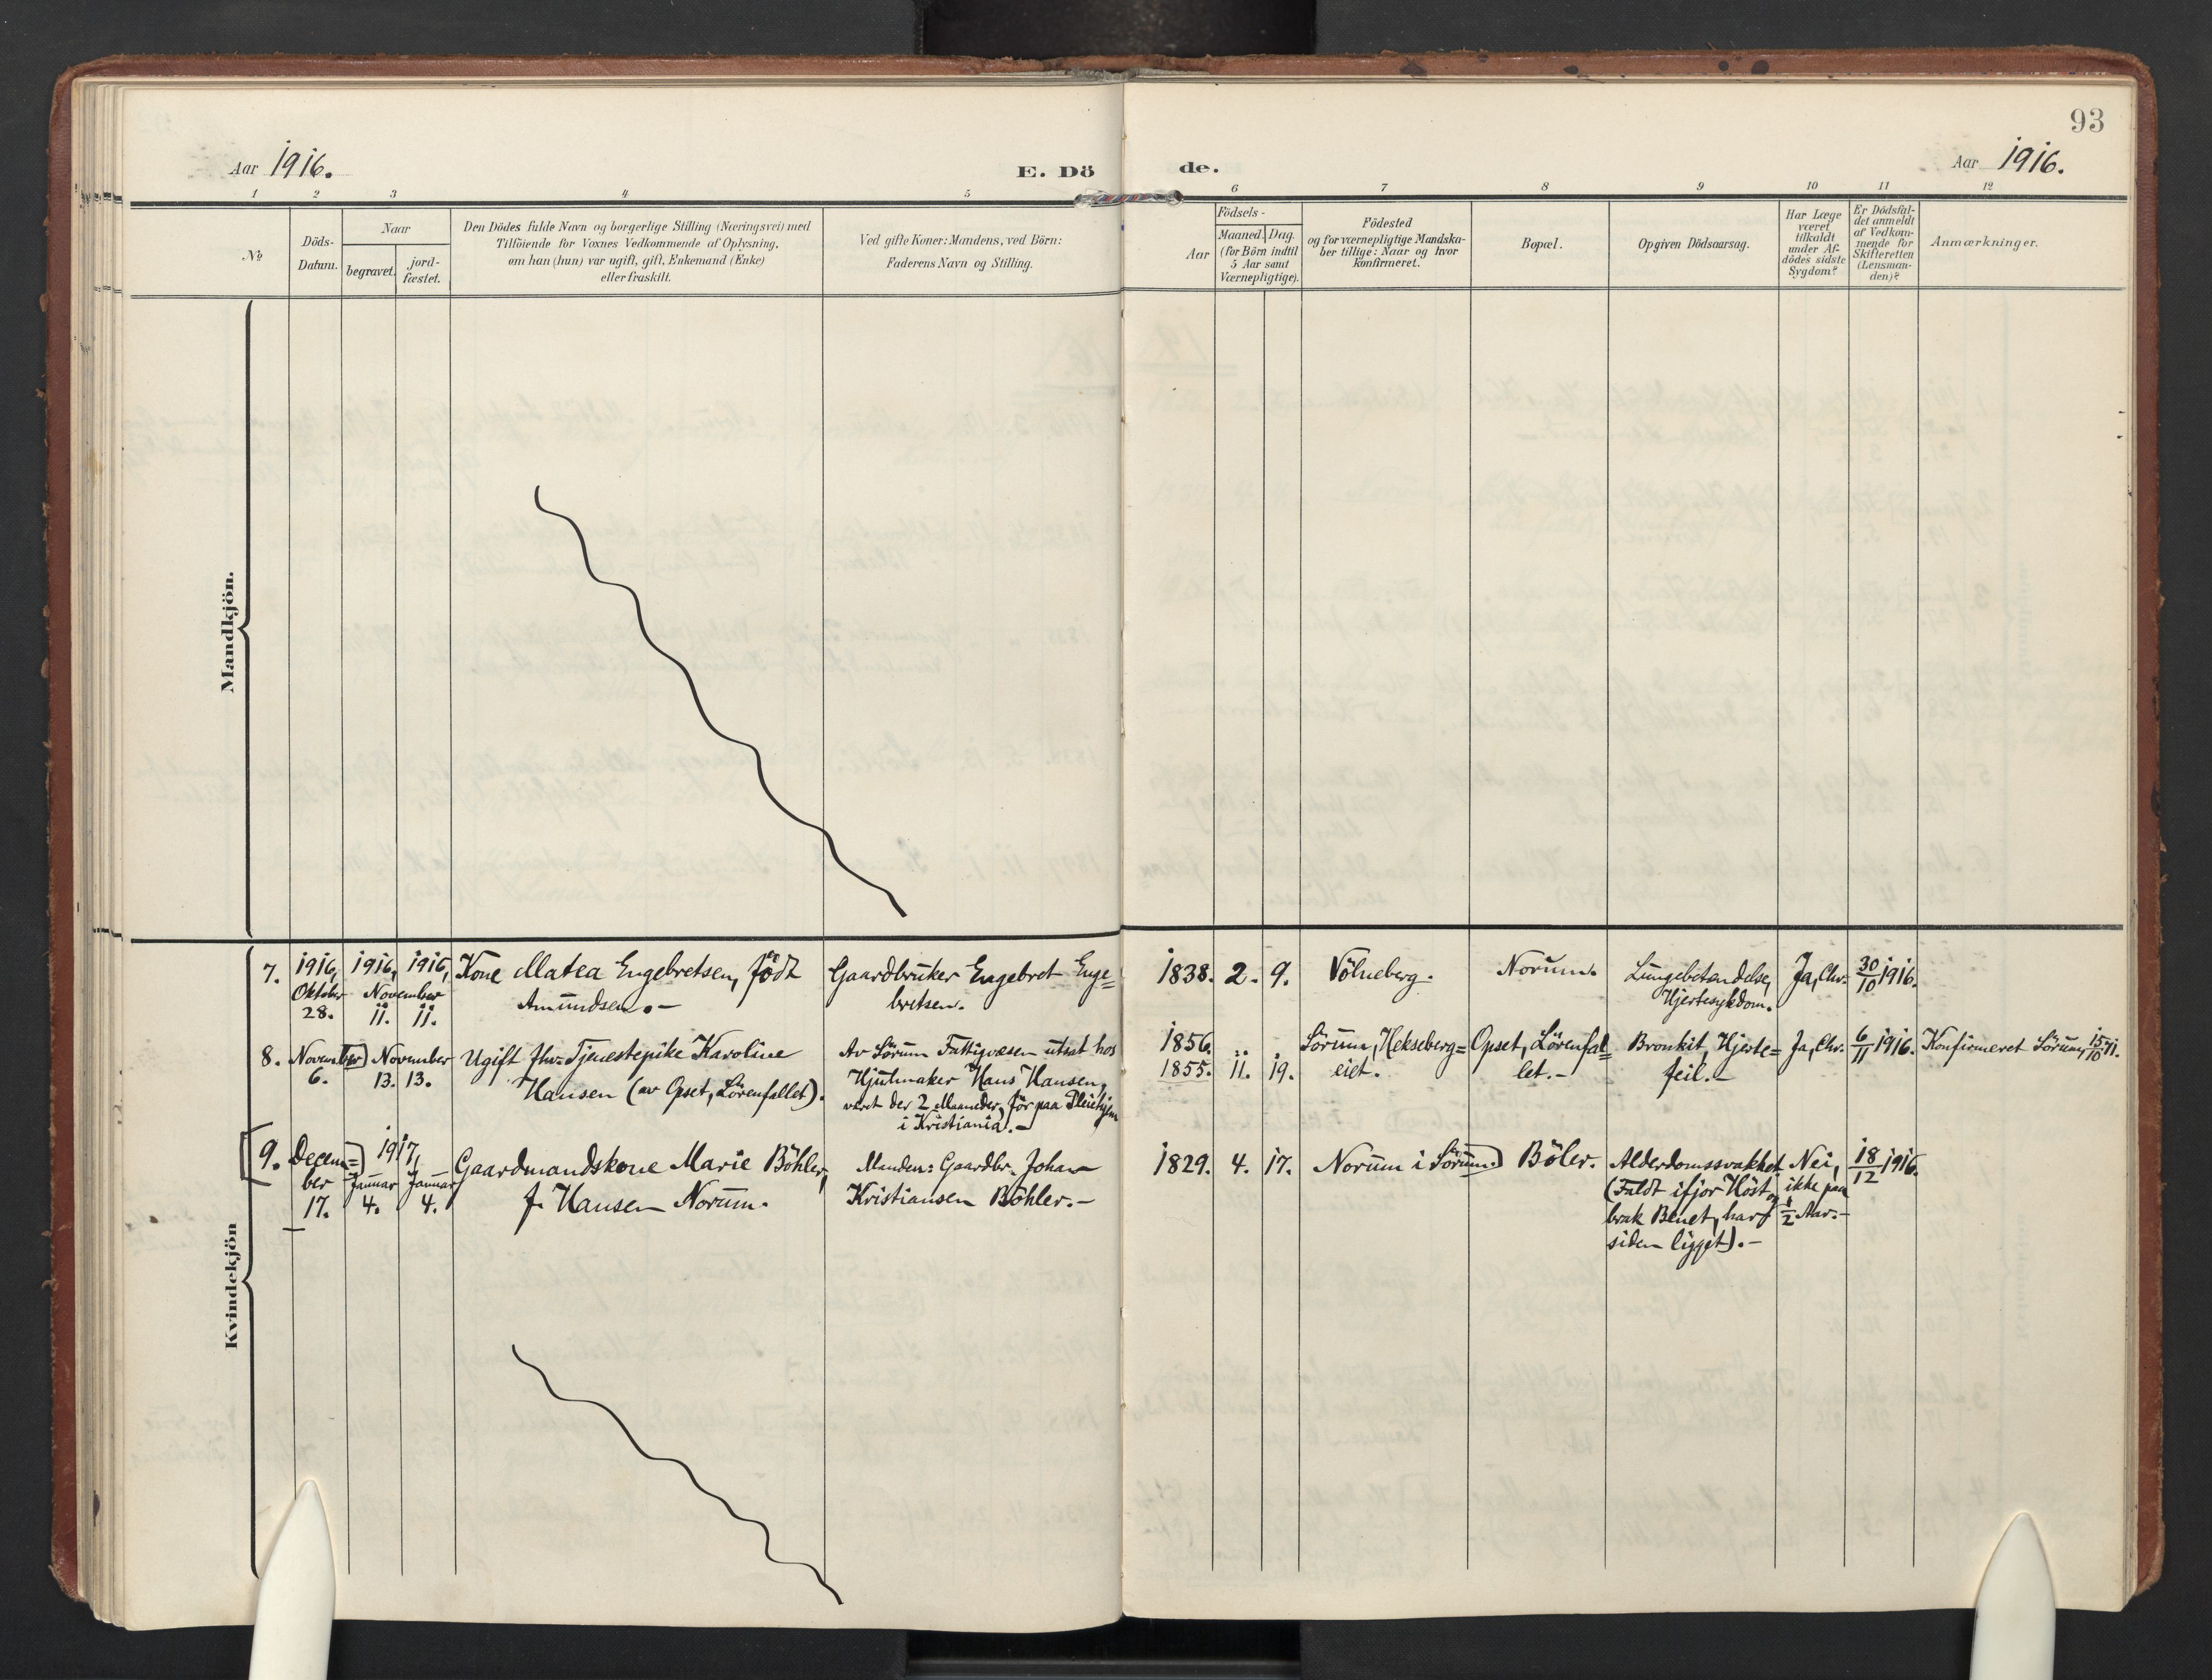 93
Aar 1916.
E. Dö
de.
Aar 1916.
1 2 3 4 5 6 7 8 9 10 11 12
No
Döds-
Datum.
Naar
begravet.
jord-
fæstet.
Den Dödes fulde Navn og borgerlige Stilling (Næringsvei) med
Tilföiende for Voxnes Vedkommende af Oplysning,
om han (hun) var ugift, gift, Enkemand (Enke)
eller fraskilt.
Ved gifte Koner: Mandens, ved Börn:
Faderens Navn og Stilling.
Födsels-
Aar
Maaned.
Dag.
(for Börn indtil
5 Aar samt
Værnepligtige).
Födested
og for værnepligtige Mandska-
ber tillige: Naar og hvor
konfirmeret.
Bopæl.
Opgiven Dödsaarsag.
Har Læge
været
tilkaldt
under Af-
dödes sidste
Sygdom?
Er Dödsfal-
det anmeldt
af Vedkom-
mende for
Skifteretten
(Lensman-
den)?
Anmærkninger.
Mandkjön.
Kvindekjön
7.
1916,
Oktober
28.
1916, 1916,
November
11. 11.
Kone Matea Engebretsen, født
Amundsen.-
Gaardbruker Engebret Enge=
bretsen.
1838. 2. 9.
Völneberg.
Norum.
Lungebetændelse,
Hjertesykdom.
Ja, Chr.
30/10 1916.
8.
November
6.
November
13. 13.
Ugift fhv. Tjenestepike Karoline
Hansen (av Opset, Lörenfallet).
Av Sörum Fattigvæsen utsat hos
Hjulmaker Hans Hansen,
været der 2 Maaneder, för paa Pleiehjem
i Kristiania.-
1856.
1855. 11. 19.
Sörum, Hekseberg=
eiet.
Opset, Lörenfal=
let.-
Bronkit, Hjerte=
feil.-
Ja, Chr.
6/11 1916.
Konfirmeret Sörum, 15/10 71.
9.
Decem=
ber
17.
1917,
Januar Januar
4. 4.
Gaardmandskone Marie Böhler,
f. Hansen Norum.
Manden: Gaardbr. Johan
Kristiansen Böhler.-
1829. 4. 17.
Norum i Sörum.
Böler.
Alderdomssvakhet
(Faldt ifjor Höst og
brak Benet, har
siden ligget).-
Nei,
ikke paa
1/2 Aar.-
18/12 1916.